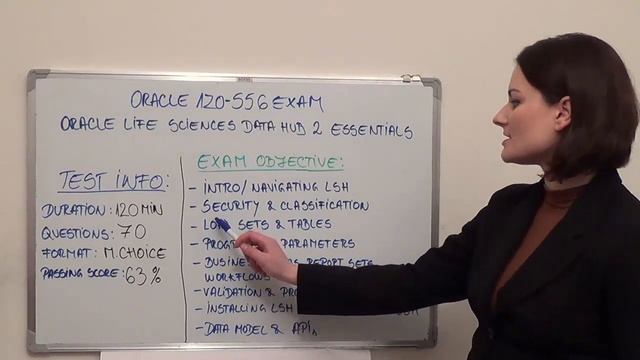 ORACLE 1Z0-556 EXAM
ORACLE LIFE SCIENCES DATA HUB 2 ESSENTIALS
TEST INFO:
DURATION: 120 MIN
QUESTIONS: 70
FORMAT: M.CHOICE
PASSING SCORE: 63%
EXAM OBJECTIVE:
- INTRO/NAVIGATING LSH
- SECURITY & CLASSIFICATION
- SETS & TABLES
- PARAMETERS
- REPORT SETS
WORKFLOWS
- VALIDATION &
- INSTALLING LSH
- DATA MODEL & APIs